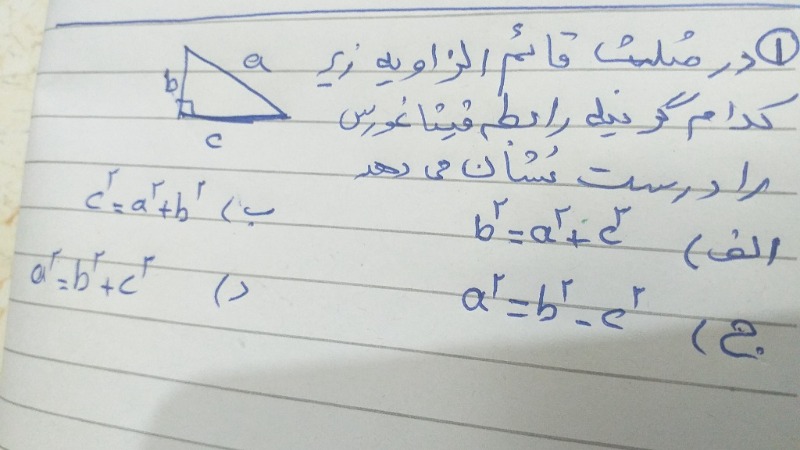 ① در مثلث قائم الزاویه زیر
a
b
c
کدام گزینه رابطه فیثاغورس
را درست نشان می دهد
الف) b۲ = a۲ + c۲
ب) c۲ = a۲ + b۲
ج) a۲ = b۲ - c۲
د) a۲ = b۲ + c۲